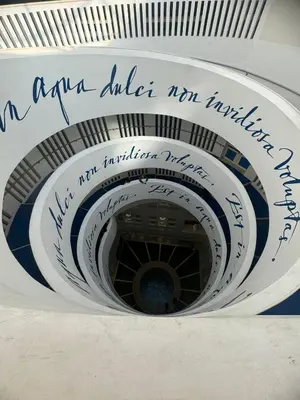 in aqua dulci non invidiosa voluptas.
dulci non invidiosa voluptas. Est in
Est in aqua